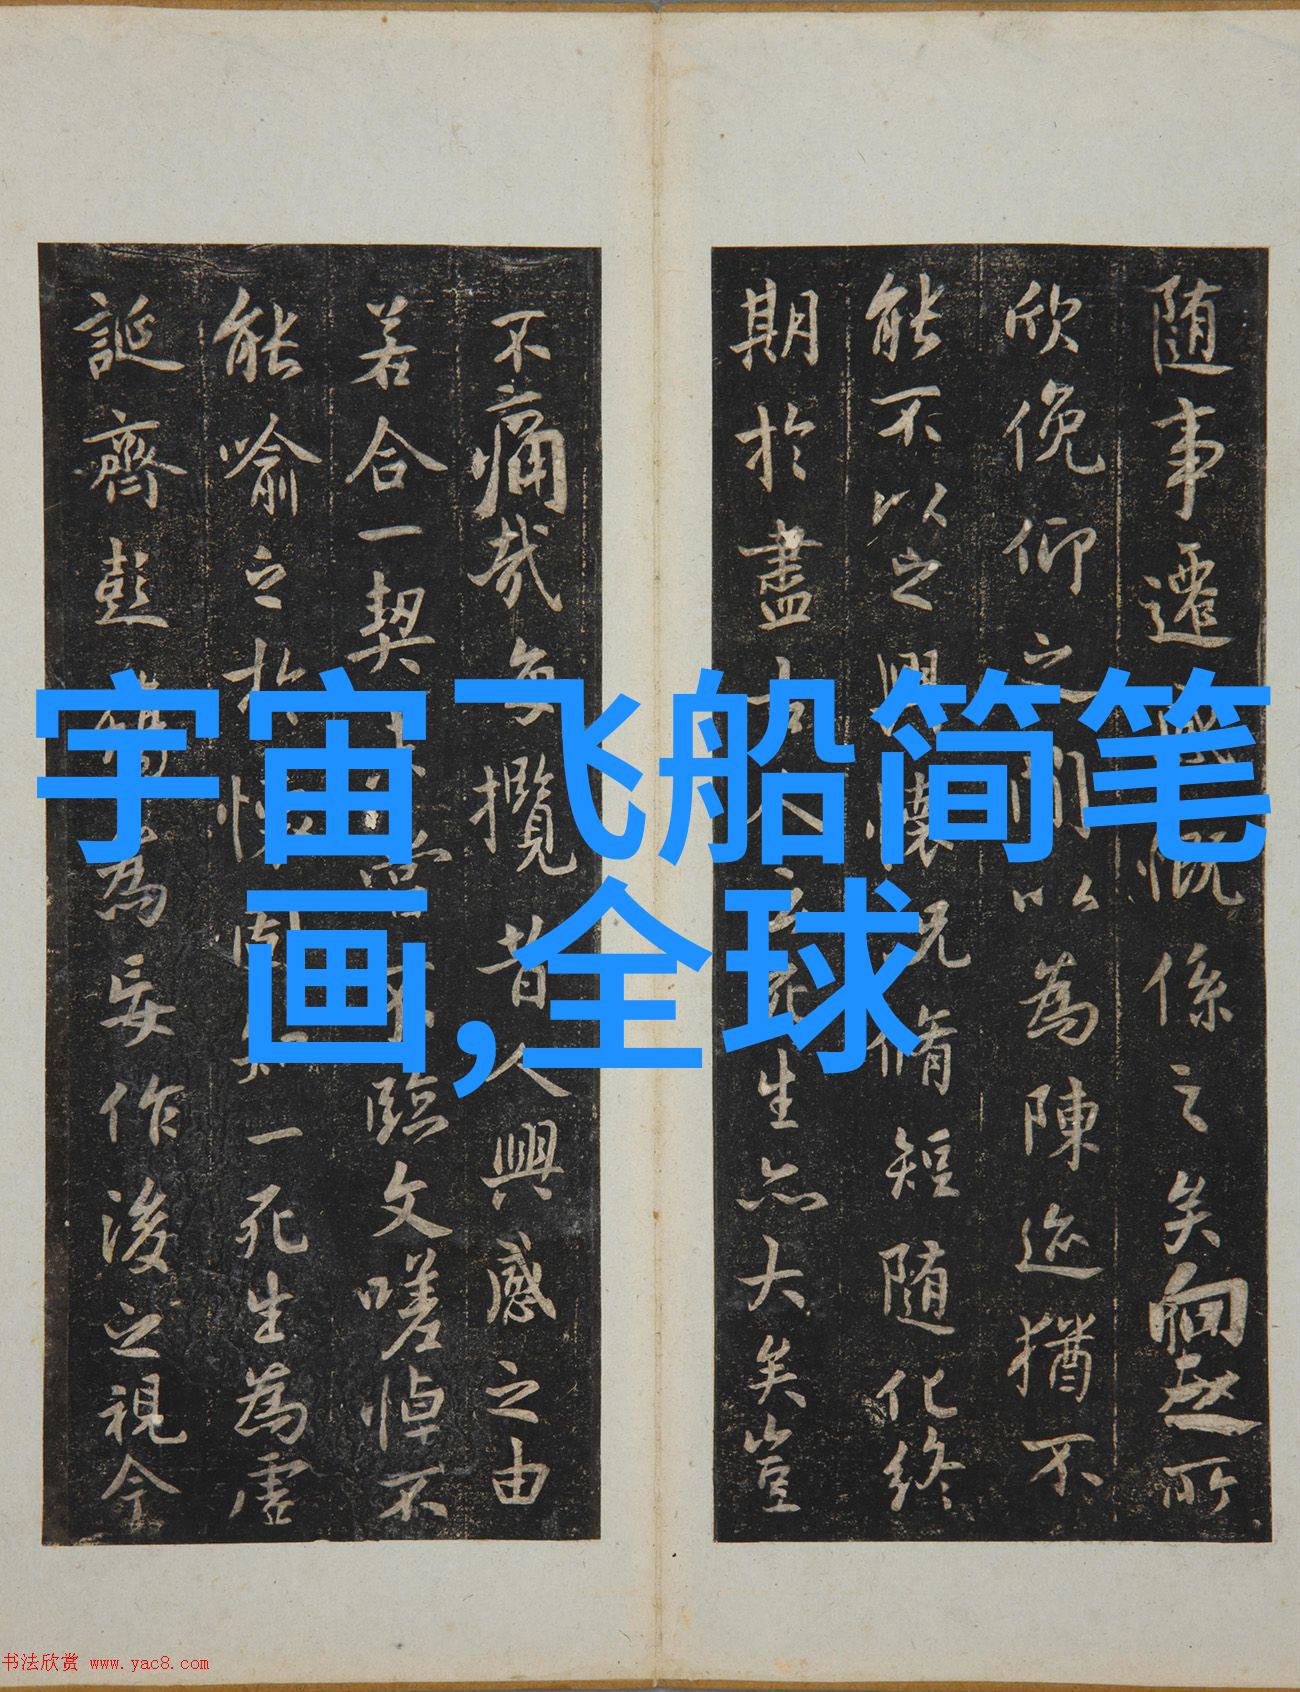 宇宙飞船简笔
画,全球
随事遷感慨係之矣向之所
欣俛仰之間以為陳迹猶不
能不以之興懷況脩短随化終
期於盡古人云死生亦大矣豈
不痛哉每攬昔人興感之由
若合一契未嘗不臨文嗟悼不
能喻之於懷固知一死生為虛
誕齊彭殤為妄作後之視今
书法欣赏 www.yac8.com